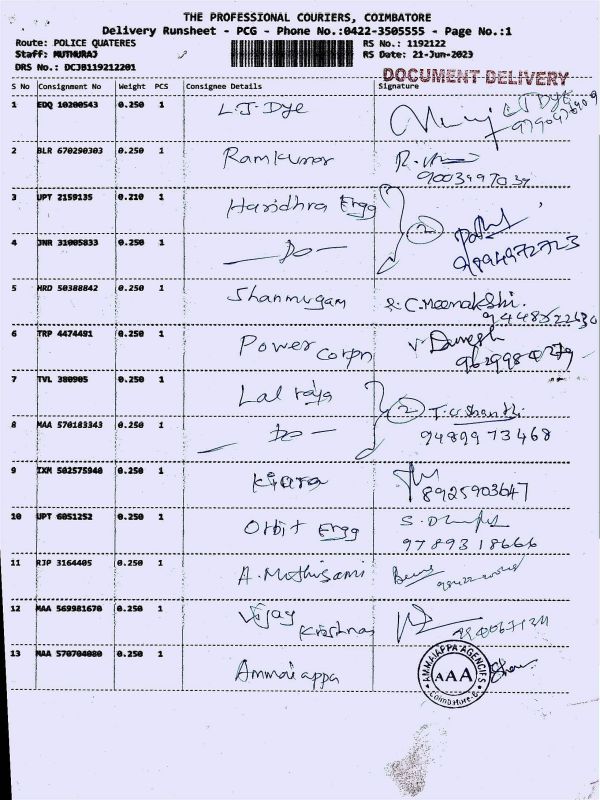 THE PROFESSIONAL COURIERS, COIMBATORE
Delivery Runsheet - PCG - Phone No.:0422-3505555 - Page No.:1
Route: POLICE QUATERES RS No.: 1192122
Staff: MUTHURAJ RS Date: 21-Jun-2023
DRS No.: DCJB119212201
DOCUMENT DELIVERY
S No Consignment No Weight PCS Consignee Details Signature
1 EDQ 10200543 0.250 1 L.J. Dye
2 BLR 670290303 0.250 1 Ramkumar
9003997039
3 UPT 2159135 0.210 1 Haridhra Engg
2
4 JNR 31005833 0.250 1 — Do —
9894972723
5 HRD 50388842 0.250 1 Shanmugam S. C. Meenakshi.
6 TRP 4474491 0.250 1 Power Corpn V. Damesh
7 TVL 380905 0.250 1 Lal raja
2 T.
8 MAA 570183343 0.250 1 — Do —
9489973468
9 IXM 502575940 0.250 1 Kiara
8925903647
10 UPT 6051252 0.250 1 Orbit Engg
9789318666
11 RJP 3164405 0.250 1 A. Muthusami
12 MAA 569981670 0.250 1 Vijay Krishna
13 MAA 570704080 0.250 1 Ammaiappa
AMMAIAPPA AGENCIES
AAA
Coimbatore-6